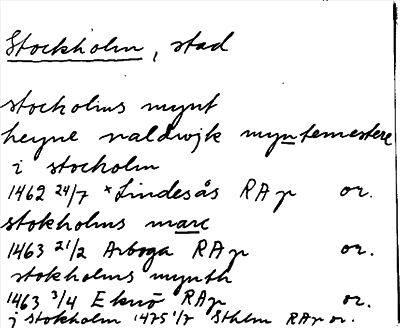 Stockholm, stad
stocholms mynt
heyne valdwjk myntemestere
i stocholm
1462 24/7 *Lindesås RAp or.
stokholms marc
1463 21/2 Arboga RAp or.
stokholms mynth
1463 3/4 Eknö RAp or.
j stokholm 1475 1/7 Sthlm RAp or.